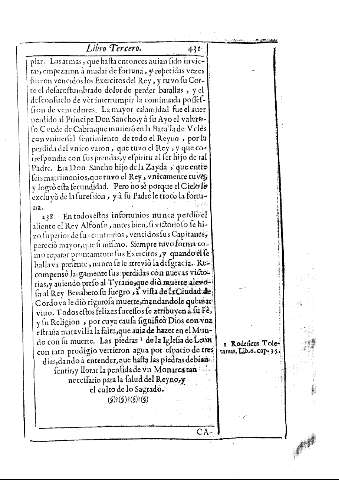 Libro Tercero. 431
plar. Las armas, que hasta entonces auian sido inuic-
tas, empezaron à mudar de fortuna, y repetidas vezes
fueron vencidos los Exercitos del Rey, y tuvo su Cor-
te el desacostumbrado dolor de perder batallas, y el
desconsuelo de ver interrumpir la continuada posses-
sion de vencedores. La mayor calamidad fue el auer
perdido al Principe Don Sancho, y à su Ayo el valero-
so Conde de Cabra, que murieron en la Batalla de Vclés
con vniversal sentimiento de todo el Reyno, por la
perdida del vnico varon, que tuvo el Rey, y que co-
respondia con sus prendas, y espiritu al ser hijo de tal
Padre. Era Don Sancho hijo de la Zayda, que entre
seis matrimonios, que tuvo el Rey, vnicamente tuvo,
y logró esta fecundidad. Pero no sè porque el Cielo le
excluyò de la sucession, y à su Padre le trocó la fortu-
na.
238. En todos estos infortunios nunca perdiò el
aliento el Rey Alfonso, antes bien, si victorioso se hi-
zo superior de sus contrarios, vencidos sus Capitanes,
pareciò mayor, que si mismo. Siempre tuvo forma co-
mo reparar promptamente sus Exercitos, y quando èl se
hallava presente, nunca se le atreviò la desgracia. Re-
compensò largamente sus perdidas con nuevas victo-
rias, y auiendo preso al Tyrano, que diò muerte alevo-
sa al Rey Benabeto su suegro, à vista de la Ciudad de
Cordova le diò rigurosa muerte, mandandole quemar
vivo. Todos estos felizes sucessos se atribuyen à su Fè,
y su Religion, y por cuya causa significò Dios con vna
estraña maravilla la falta, que auia de hazer en el Mun-
do con su muerte. Las piedras 1 de la Iglesia de Leon
con raro prodigio vertieron agua por espacio de tres
dias, dando à entender, que hasta las piedras debian
sentir, y llorar la perdida de vn Monarca tan
necessario para la salud del Reyno, y
el culto de lo Sagrado.
(§)(§)(§)(§)
1 Rodericus Tole-
tanus, Lib. 6. cap. 35.
CA-